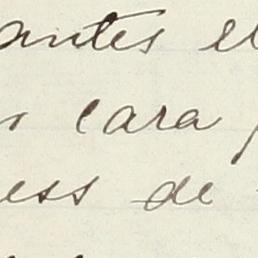 antes el
cara
ess de